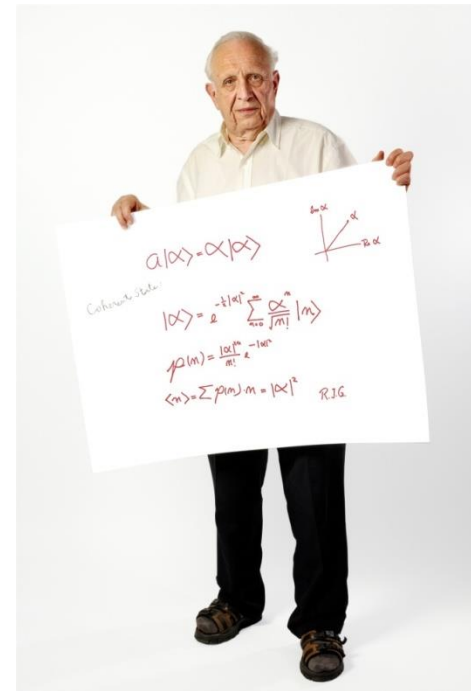 Im α
α
Re α
a|α⟩=α|α⟩
Coherent State:
|α⟩ = e^{-½|α|²} ∑_{n=0}^{∞} αⁿ/√n! |n⟩
p(n) = |α|²ⁿ/n! e^{-|α|²}
⟨n⟩=∑p(n)·n = |α|²
R.J.G.